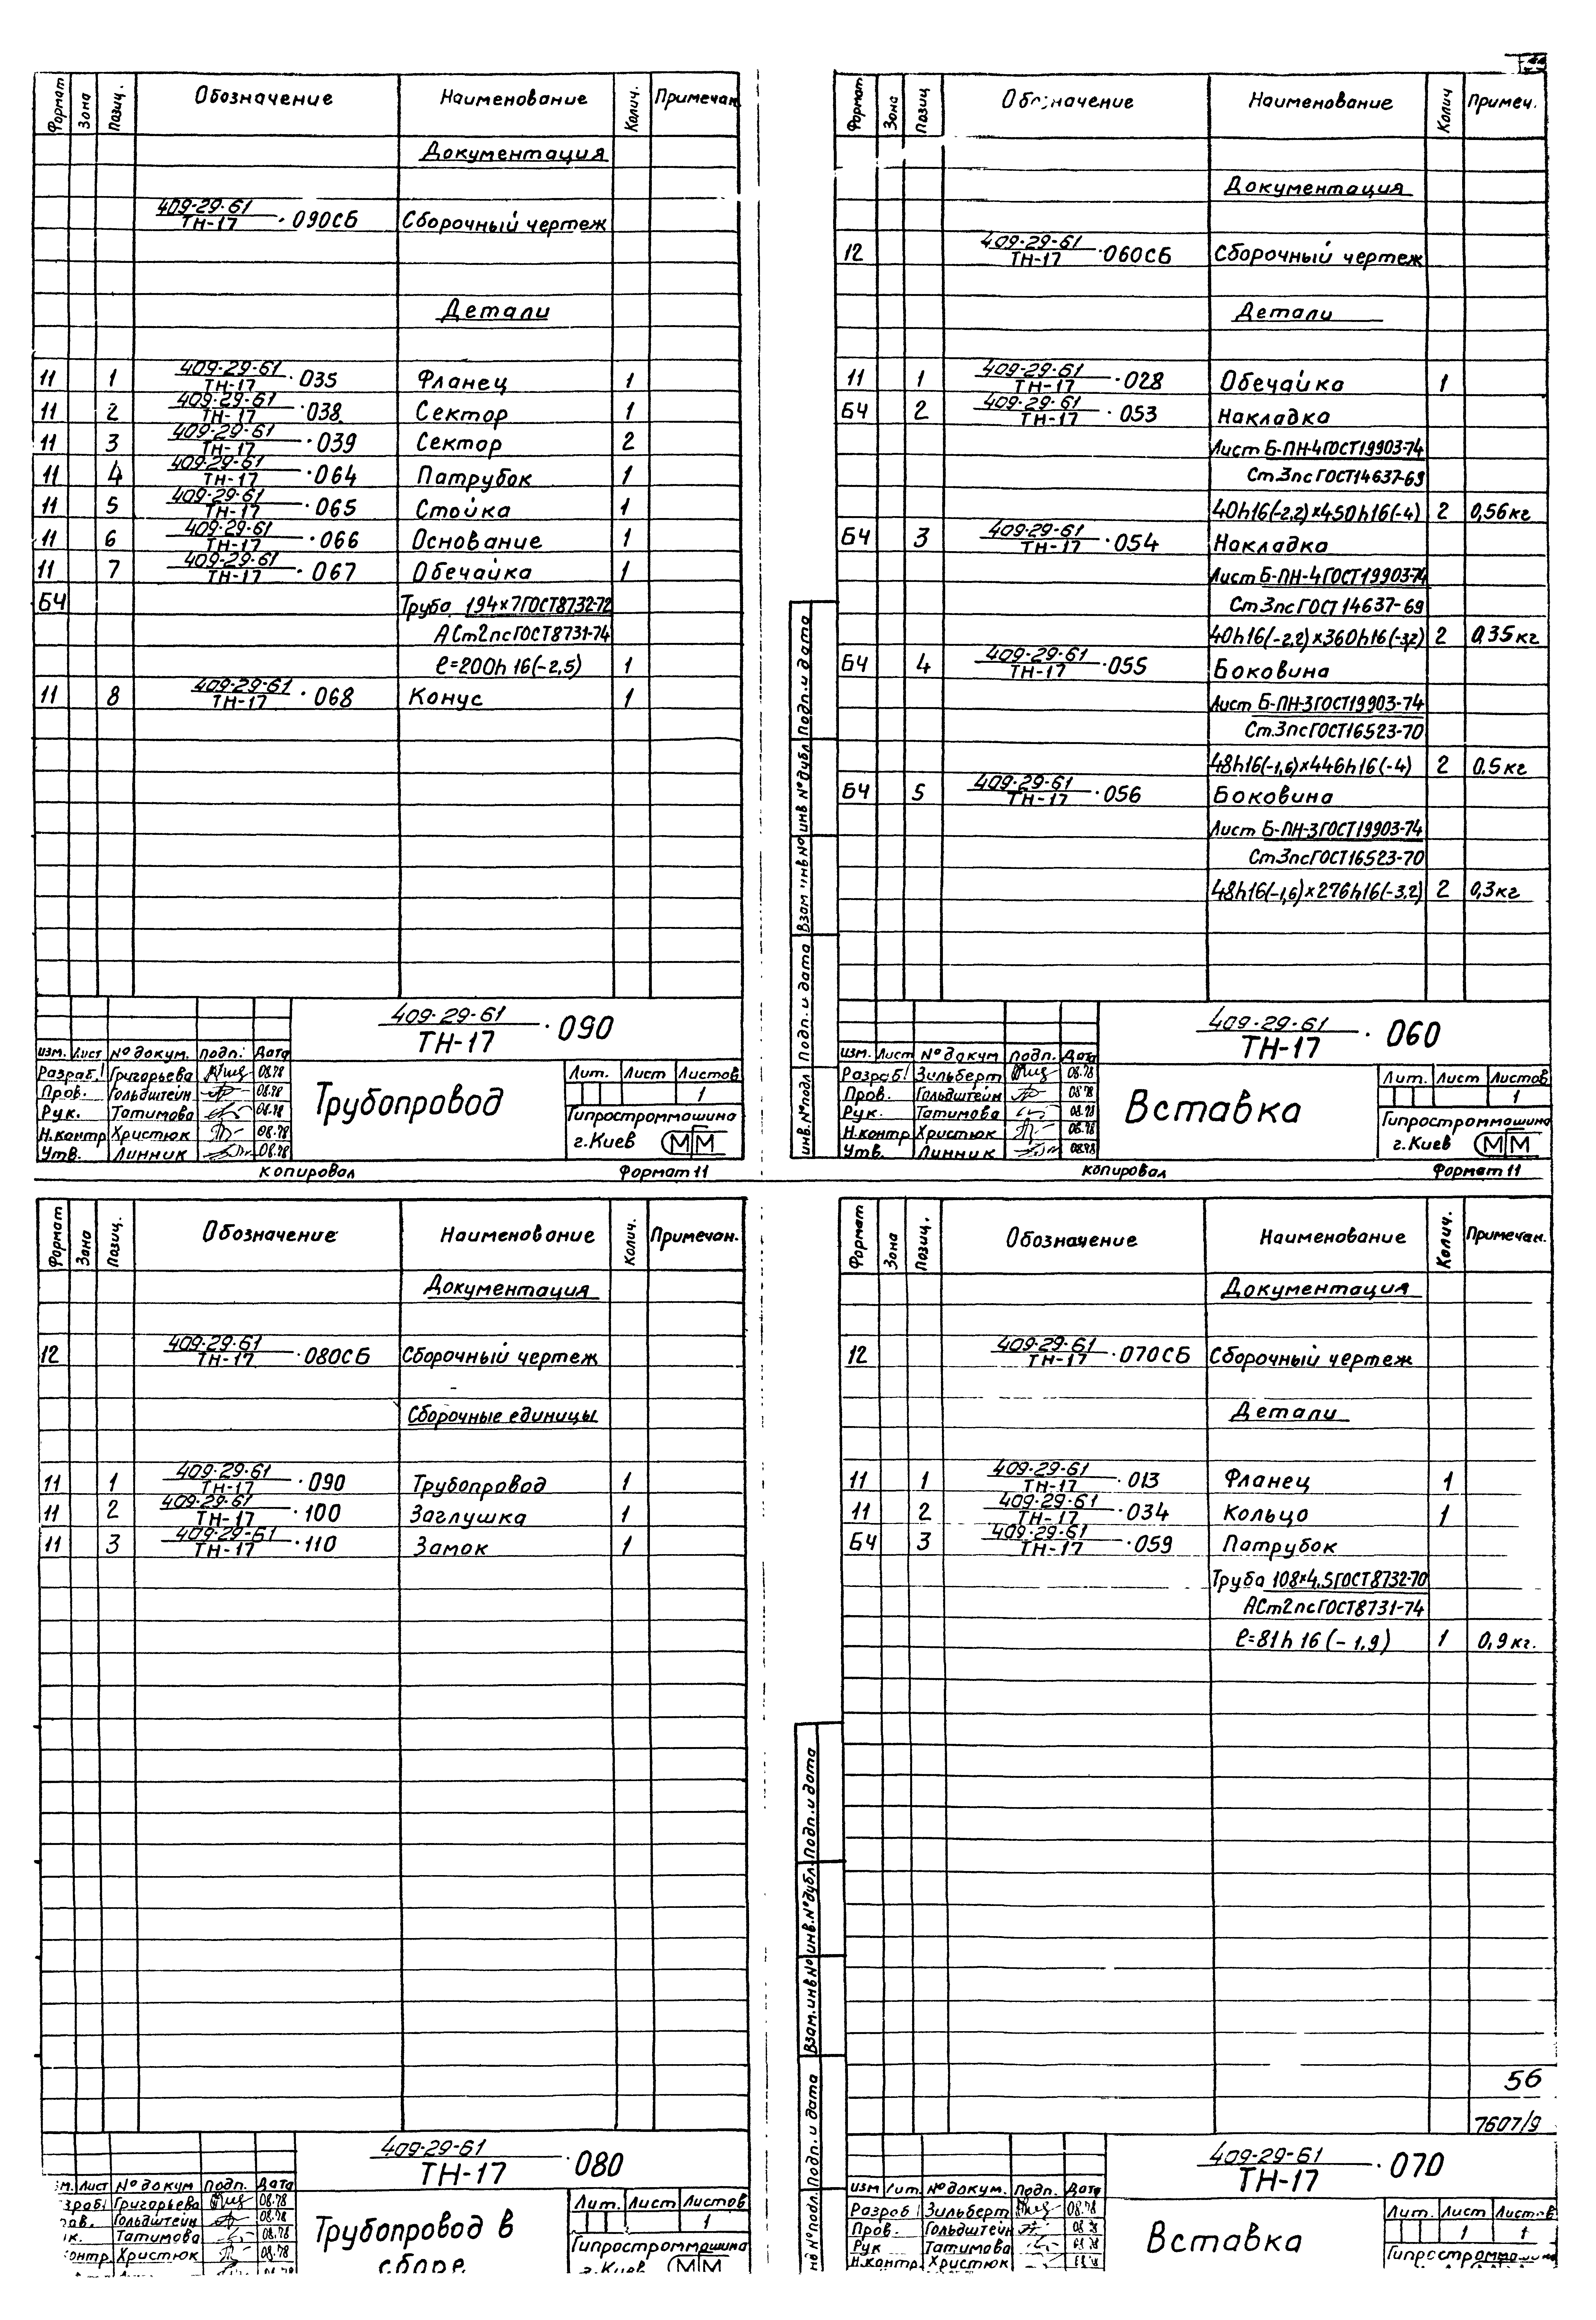 Формат Зона Позиц. Обозначение Наименование Колич. Примечан.
Документация
409-29-61
ТН-17 · 090СБ Сборочный чертеж
Детали
11 1 409-29-61/ТН-17 · 035 Фланец 1
11 2 409-29-61/ТН-17 · 038 Сектор 1
11 3 409-29-61/ТН-17 · 039 Сектор 2
11 4 409-29-61/ТН-17 · 064 Патрубок 1
11 5 409-29-61/ТН-17 · 065 Стойка 1
11 6 409-29-61/ТН-17 · 066 Основание 1
11 7 409-29-61/ТН-17 · 067 Обечайка 1
БЧ Труба 194×7ГОСТ8732-72
АСт2псГОСТ8731-74
ℓ=200h16(-2,5) 1
11 8 409-29-61/ТН-17 · 068 Конус 1
409-29-61
ТН-17 · 090
изм. Лист №докум. подп. Дата
Разраб. Григорьева 08.78
Пров. Гольдштейн 08.78
Рук. Татимова 08.78
Н.контр Христюк 08.78
Утв. Линник 08.78
Трубопровод
Лит. Лист Листов
1
Гипростроммашина
г.Киев ММ
копировал Формат 11
Формат Зона Позиц Обозначение Наименование Колич Примеч.
Документация
12 409-29-61/ТН-17 · 060СБ Сборочный чертеж
Детали
11 1 409-29-61/ТН-17 · 028 Обечайка 1
БЧ 2 409-29-61/ТН-17 · 053 Накладка
Лист Б-ПН-4ГОСТ19903-74
Ст.3псГОСТ14637-69
40h16(-2,2)×450h16(-4) 2 0,56кг
БЧ 3 409-29-61/ТН-17 · 054 Накладка
Лист Б-ПН-4ГОСТ19903-74
Ст3псГОСТ14637-69
40h16(-2,2)×360h16(-3,2) 2 0.35кг
БЧ 4 409-29-61/ТН-17 · 055 Боковина
Лист Б-ПН-3ГОСТ19903-74
Ст.3псГОСТ16523-70
48h16(-1,6)×446h16(-4) 2 0.5кг
БЧ 5 409-29-61/ТН-17 · 056 Боковина
Лист Б-ПН-3ГОСТ19903-74
Ст3псГОСТ16523-70
48h16(-1,6)×276h16(-3,2) 2 0,3кг
инв.№подл Подп.и дата Взам инв№ инв №дубл Подп.и дата
409-29-61
ТН-17 · 060
изм. Лист №докум подп. Дата
Разраб Зильберт 08.78
Пров. Гольдштейн 08.78
Рук. Татимова 08.78
Н.контр Христюк 08.78
Утв. Линник 08.78
Вставка
Лит. Лист Листов
1
Гипростроммашина
г.Киев ММ
копировал Формат 11
Формат Зона Позиц. Обозначение Наименование Колич. Примечан.
Документация
12 409-29-61/ТН-17 · 080СБ Сборочный чертеж
Сборочные единицы
11 1 409-29-61/ТН-17 · 090 Трубопровод 1
11 2 409-29-61/ТН-17 · 100 Заглушка 1
11 3 409-29-61/ТН-17 · 110 Замок 1
409-29-61
ТН-17 · 080
Лист №докум подп. Дата
Григорьева 08.78
Гольдштейн 08.78
Татимова 08.78
Христюк 08.78
Трубопровод в
сборе
Лит. Лист Листов
1
Гипростроммашина
г.Киев ММ
Формат Зона Позиц. Обозначение Наименование Колич. Примечан.
Документация
12 409-29-61/ТН-17 · 070СБ Сборочный чертеж
Детали
11 1 409-29-61/ТН-17 · 013 Фланец 1
11 2 409-29-61/ТН-17 · 034 Кольцо 1
БЧ 3 409-29-61/ТН-17 · 059 Патрубок
Труба 108×4.5ГОСТ8732-70
АСт2псГОСТ8731-74
ℓ=81h16(-1,9) 1 0,9кг.
56
7607/9
Подп.и дата Взам.инв№ инв.№дубл. Подп.и дата
409-29-61
ТН-17 · 070
изм №докум. подп. Дата
Разраб Зильберт 08.78
Пров. Гольдштейн
Рук Татимова
Н.контр Христюк
Вставка
Лит. Лист
1 1
Гипростроммашина